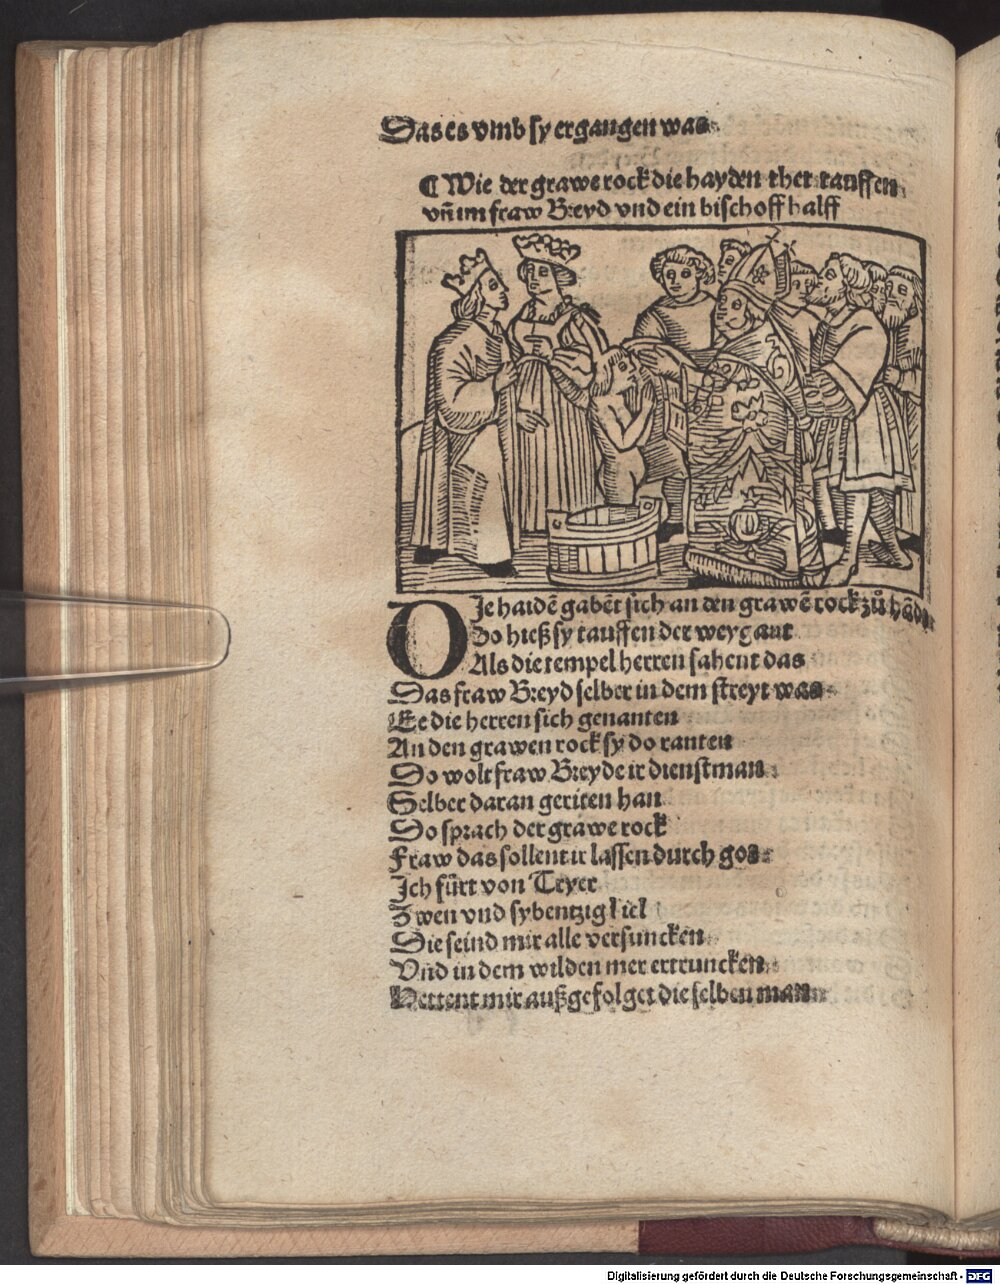 Das es vmb sy ergangen was
¶ Wie der grawe rock die hayden thet tauffen
vñ im fraw Breyd vnd ein bischoff halff
DIe haidē gabēt sich an den grawē rock zů hād
Do hieß sy tauffen der weygant
Als die tempel herren sahent das
Das fraw Breyd selber in dem streyt was
Ee die herren sich genanten
An den grawen rock sy do ranten
Do wolt fraw Breyde ir dienstman
Selber daran geriten han
Do sprach der grawe rock
Fraw das sollent ir lassen durch got
Ich fürt von Tryer
Zwen vnd sybentzig kiel
Die seind mir alle versuncken
Vnd in dem wilden mer ertruncken
Hettent mir außgefolget die selben man
Digitalisierung gefördert durch die Deutsche Forschungsgemeinschaft - DFG